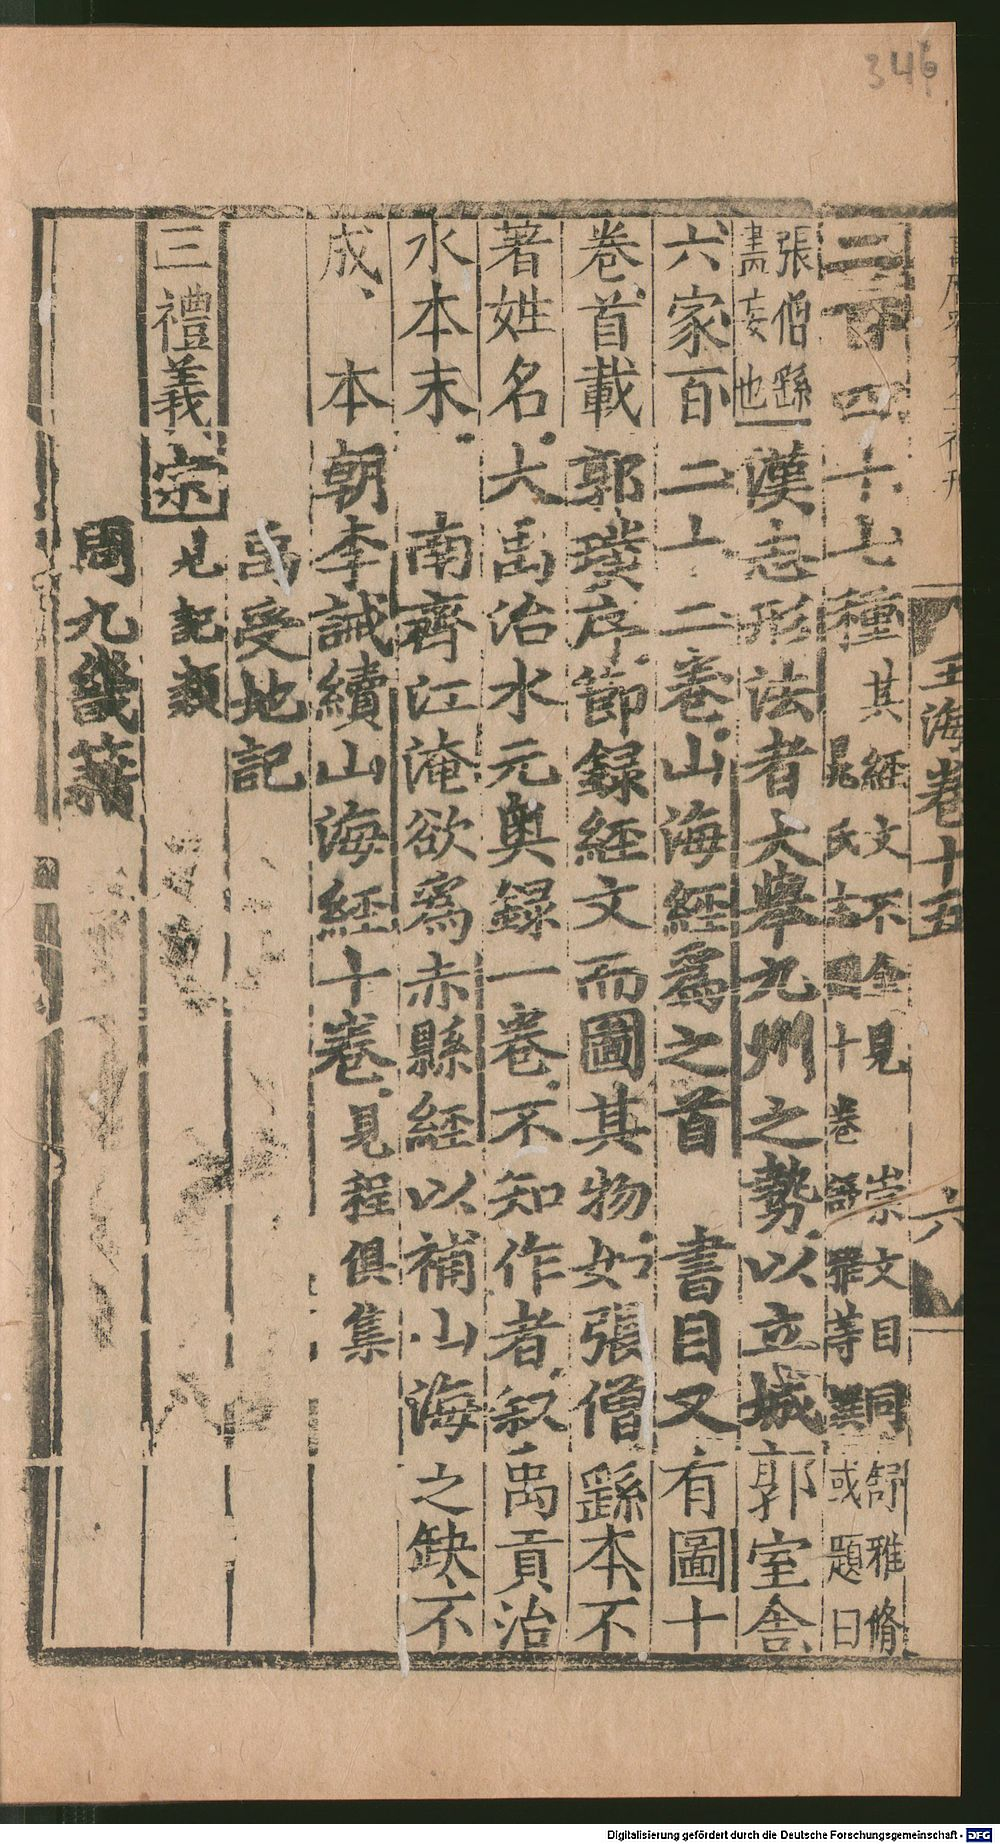 346
玉海卷十五
六
二百四十七種其經文不全見崇文目同舒雅脩
晁氏志十卷舒雅等撰或題曰
張僧繇畫妄也漢志形法者大舉九州之勢以立城郭室舍
六家百二十二卷山海經爲之首 書目又有圖十
卷首載郭璞序節録經文而圖其物如張僧繇本不
著姓名大禹治水元奥録一卷不知作者叙禹貢治
水本末 南齊江淹欲爲赤縣經以補山海之缺不
成 本朝李誡續山海經十卷見程俱集
禹受地記
三禮義宗見記類
周九畿籍
Digitalisierung gefördert durch die Deutsche Forschungsgemeinschaft - DFG